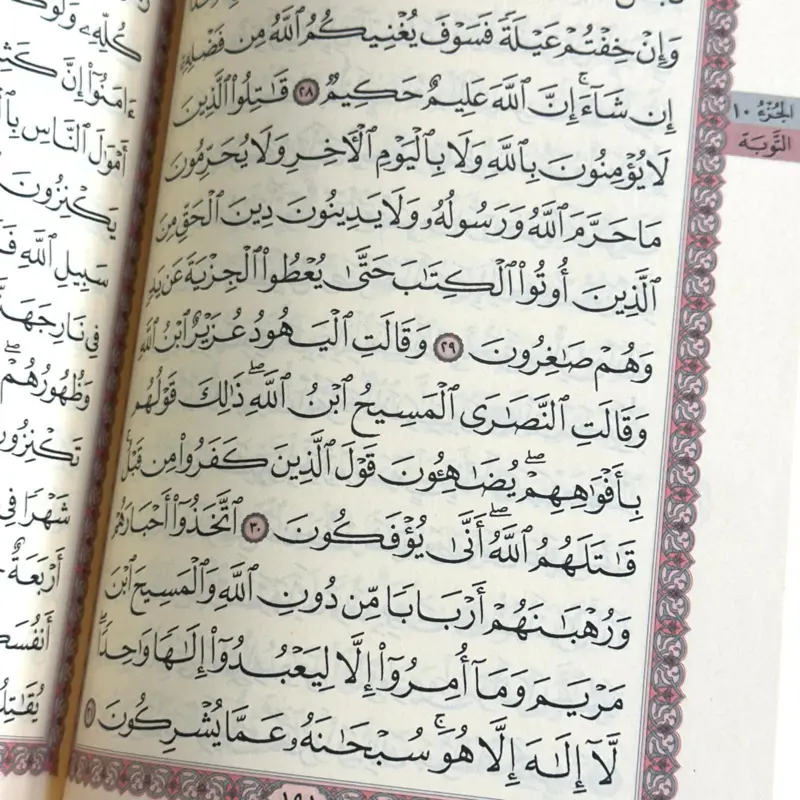 وَإِنْ خِفْتُمْ عَيْلَةً فَسَوْفَ يُغْنِيكُمُ ٱللَّهُ مِن فَضْلِهِۦٓ
إِن شَآءَۚ إِنَّ ٱللَّهَ عَلِيمٌ حَكِيمٌ ٢٨ قَٰتِلُوا۟ ٱلَّذِينَ
لَا يُؤْمِنُونَ بِٱللَّهِ وَلَا بِٱلْيَوْمِ ٱلْأَخِرِ وَلَا يُحَرِّمُونَ
مَا حَرَّمَ ٱللَّهُ وَرَسُولُهُۥ وَلَا يَدِينُونَ دِينَ ٱلْحَقِّ مِنَ
ٱلَّذِينَ أُوتُوا۟ ٱلْكِتَٰبَ حَتَّىٰ يُعْطُوا۟ ٱلْجِزْيَةَ عَن يَدٍ
وَهُمْ صَٰغِرُونَ ٢٩ وَقَالَتِ ٱلْيَهُودُ عُزَيْرٌ ٱبْنُ ٱللَّهِ
وَقَالَتِ ٱلنَّصَٰرَى ٱلْمَسِيحُ ٱبْنُ ٱللَّهِۖ ذَٰلِكَ قَوْلُهُم
بِأَفْوَٰهِهِمْۖ يُضَٰهِـُٔونَ قَوْلَ ٱلَّذِينَ كَفَرُوا۟ مِن قَبْلُۚ
قَٰتَلَهُمُ ٱللَّهُۖ أَنَّىٰ يُؤْفَكُونَ ٣٠ ٱتَّخَذُوٓا۟ أَحْبَارَهُمْ
وَرُهْبَٰنَهُمْ أَرْبَابًا مِّن دُونِ ٱللَّهِ وَٱلْمَسِيحَ ٱبْنَ
مَرْيَمَ وَمَآ أُمِرُوٓا۟ إِلَّا لِيَعْبُدُوٓا۟ إِلَٰهًا وَٰحِدًاۖ
لَّآ إِلَٰهَ إِلَّا هُوَۚ سُبْحَٰنَهُۥ عَمَّا يُشْرِكُونَ
١٩١
الجُزْءُ ١٠
التَّوبَة
كُلِّهِۦ وَلَوْ
ءَامَنُوٓا۟ إِنَّ
أَمْوَٰلَ ٱلنَّاسِ
يَكْنِزُونَ
سَبِيلِ ٱللَّهِ
فِى نَارِ جَهَ
وَظُهُورُهُمْۖ
تَكْنِزُو
شَهْرًا فِى
أَرْبَعَةٌ
أَنفُسَ
يُقَٰتِلُ